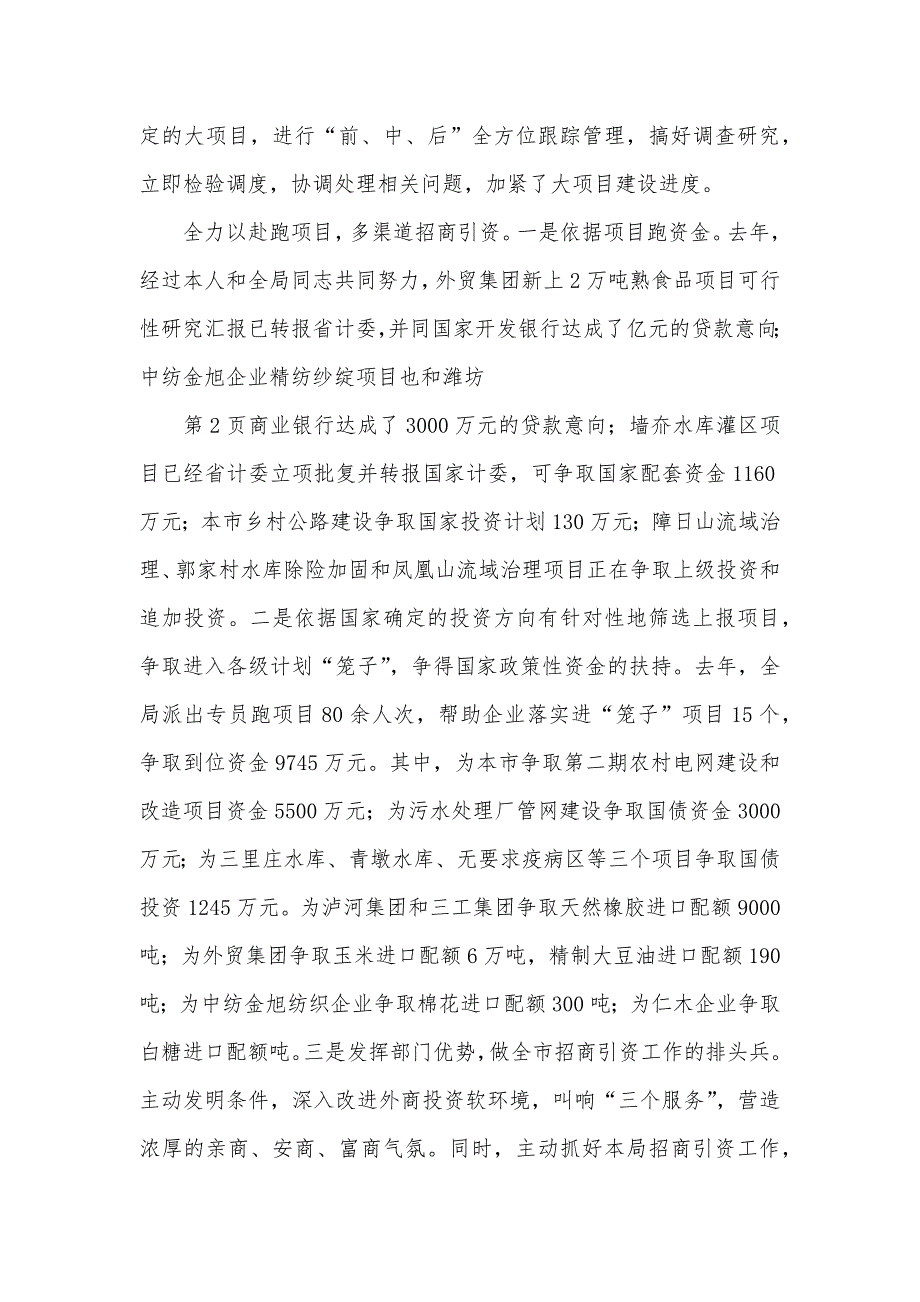 定的大项目，进行“前、中、后”全方位跟踪管理，搞好调查研究，
立即检验调度，协调处理相关问题，加紧了大项目建设进度。
全力以赴跑项目，多渠道招商引资。一是依据项目跑资金。去年，
经过本人和全局同志共同努力，外贸集团新上2万吨熟食品项目可行
性研究汇报已转报省计委，并同国家开发银行达成了亿元的贷款意向；
中纺金旭企业精纺纱绽项目也和潍坊
第2页商业银行达成了3000万元的贷款意向；墙夼水库灌区项
目已经省计委立项批复并转报国家计委，可争取国家配套资金1160
万元；本市乡村公路建设争取国家投资计划130万元；障日山流域治
理、郭家村水库除险加固和凤凰山流域治理项目正在争取上级投资和
追加投资。二是依据国家确定的投资方向有针对性地筛选上报项目，
争取进入各级计划“笼子”，争得国家政策性资金的扶持。去年，全
局派出专员跑项目80余人次，帮助企业落实进“笼子”项目15个，
争取到位资金9745万元。其中，为本市争取第二期农村电网建设和
改造项目资金5500万元；为污水处理厂管网建设争取国债资金3000
万元；为三里庄水库、青墩水库、无要求疫病区等三个项目争取国债
投资1245万元。为泸河集团和三工集团争取天然橡胶进口配额9000
吨；为外贸集团争取玉米进口配额6万吨，精制大豆油进口配额190
吨；为中纺金旭纺织企业争取棉花进口配额300吨；为仁木企业争取
白糖进口配额吨。三是发挥部门优势，做全市招商引资工作的排头兵。
主动发明条件，深入改进外商投资软环境，叫响“三个服务”，营造
浓厚的亲商、安商、富商气氛。同时，主动抓好本局招商引资工作，